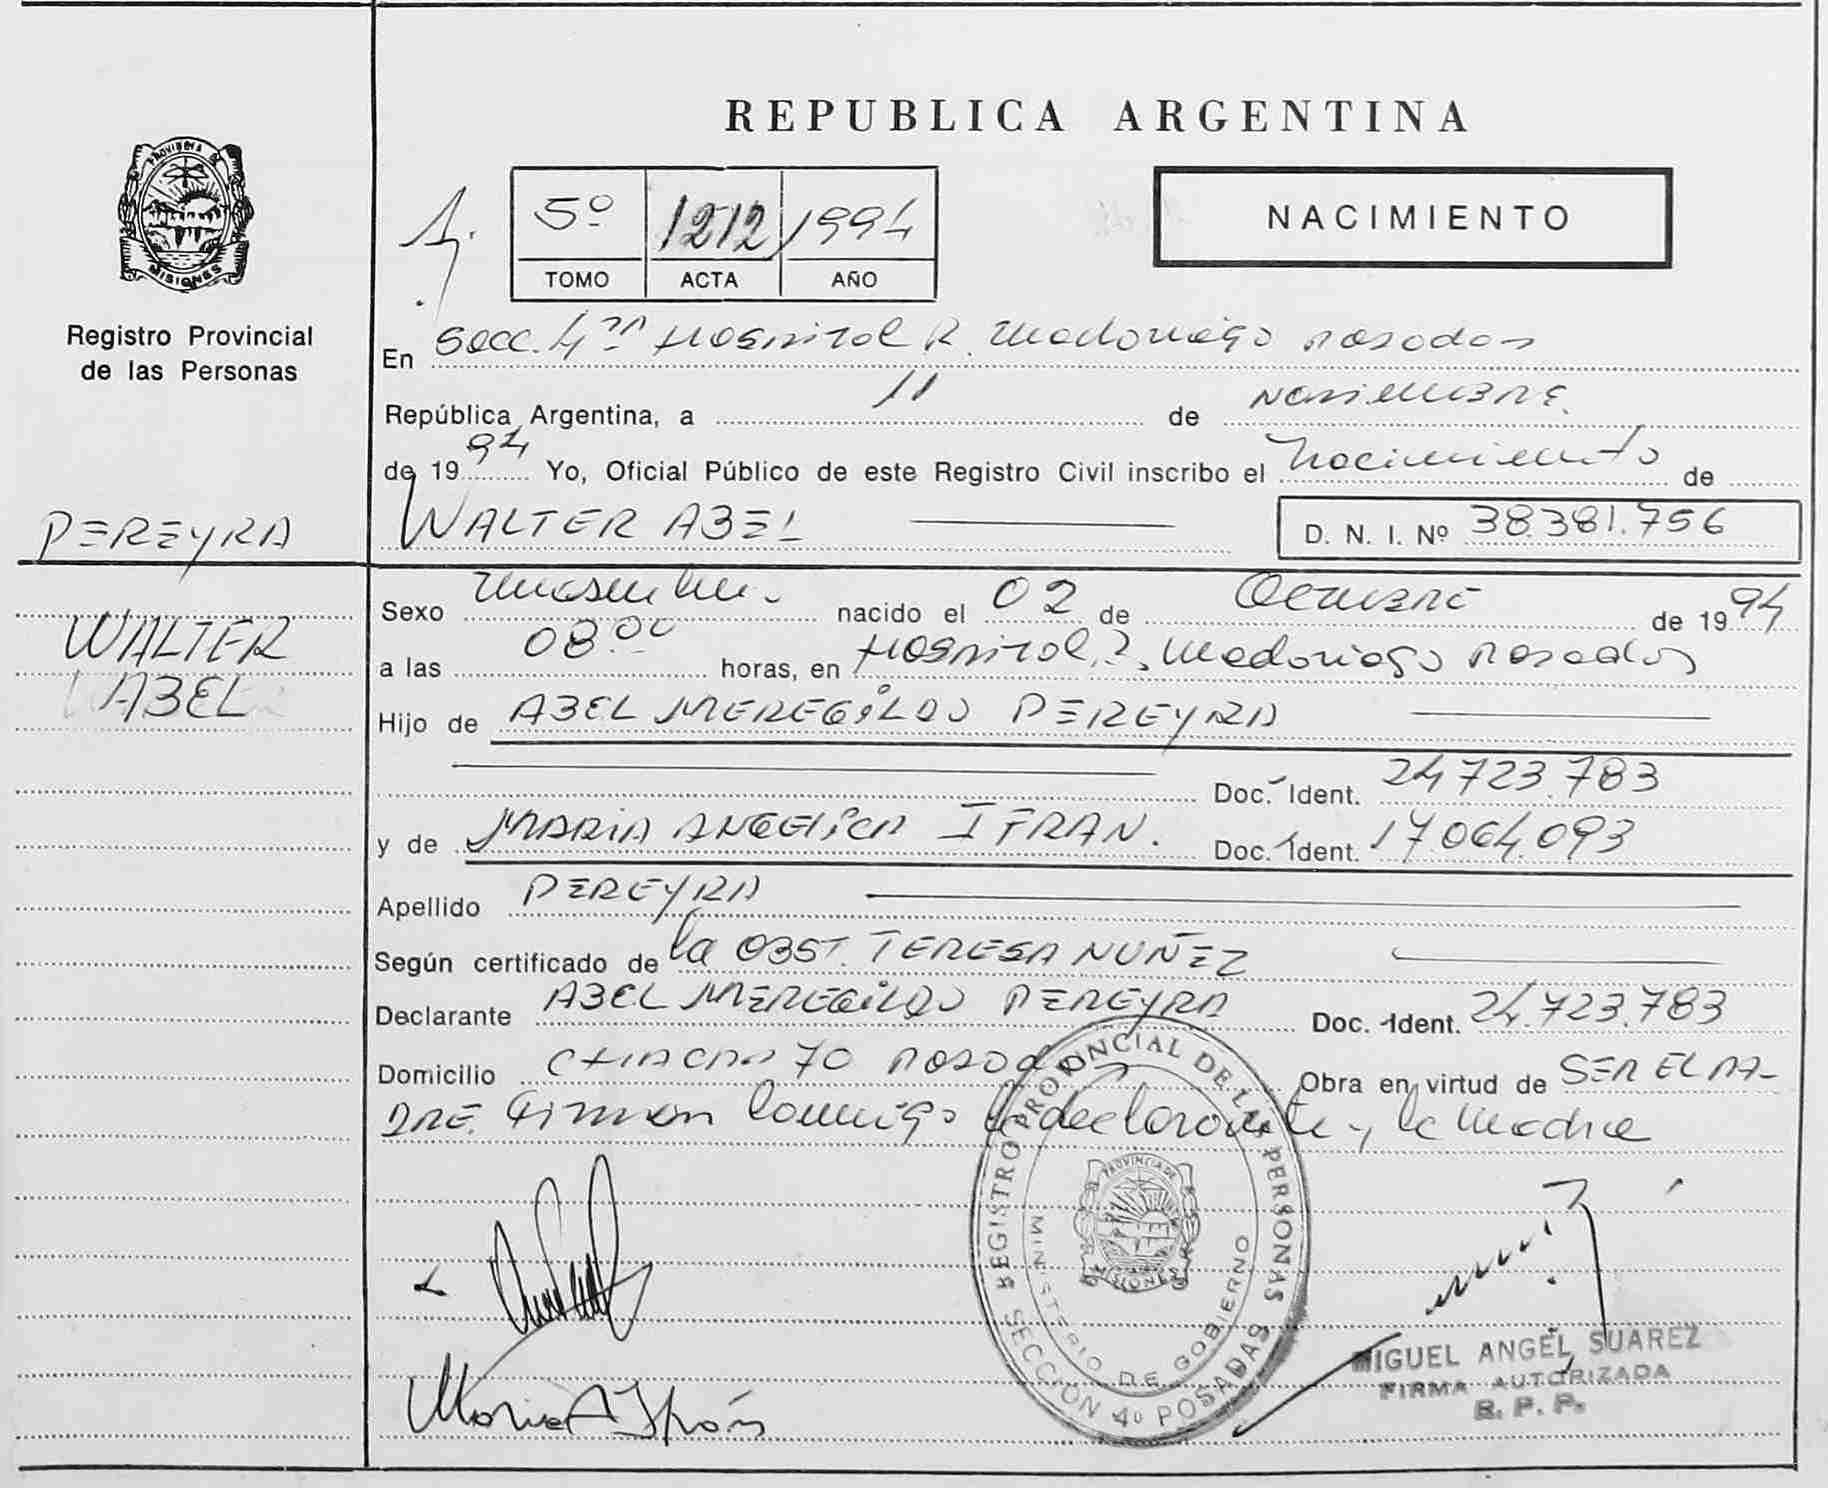 REPUBLICA ARGENTINA
PROVINCIA DE
MISIONES
Registro Provincial
de las Personas
5º 1212 1994
TOMO ACTA AÑO
NACIMIENTO
En Secc. 4ta Hospital R. Madariaga Posadas
República Argentina, a 11 de Noviembre.
de 1994 Yo, Oficial Público de este Registro Civil inscribo el nacimiento de
PEREYRA
WALTER ABEL
D. N. I. Nº 38.381.756
WALTER
ABEL
Sexo masculino nacido el 02 de Octubre de 1994
a las 08.00 horas, en Hospital R. Madariaga Posadas
Hijo de ABEL MEREGILDO PEREYRA
Doc. Ident. 24.723.783
y de MARIA ANGELICA IFRAN. Doc. Ident. 17.064.093
Apellido PEREYRA
Según certificado de la OBST. TERESA NUÑEZ
Declarante ABEL MEREGILDO PEREYRA Doc. Ident. 24.723.783
Domicilio CHACRA 70 POSADAS Obra en virtud de SER EL PA-
DRE. Firman conmigo el declarante y la madre
REGISTRO PROVINCIAL DE LAS PERSONAS
SECCIÓN 4º POSADAS
MINISTERIO DE GOBIERNO
PROVINCIA DE
MISIONES
Maria A Ifrán
MIGUEL ANGEL SUAREZ
FIRMA AUTORIZADA
R. P. P.